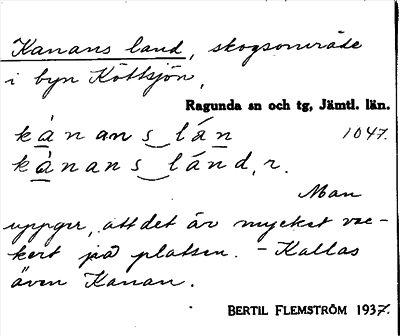 Kanans land, skogsområde
i byn Köttsjön,
Ragunda sn och tg, Jämtl. län.
kànans lán 1047.
kànans lánd, n.
Man
uppger, att det är mycket vac-
kert på platsen. - Kallas
även Kanan.
BERTIL FLEMSTRÖM 1937.